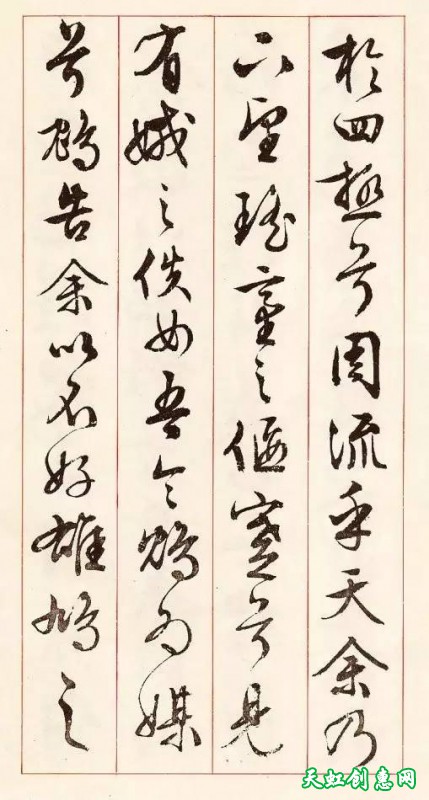 於四極兮周流乎天余乃
下望瑤臺之偃蹇兮見
有娀之佚女吾令鴆為媒
兮鴆告余以不好雄鳩之
天虹创意网